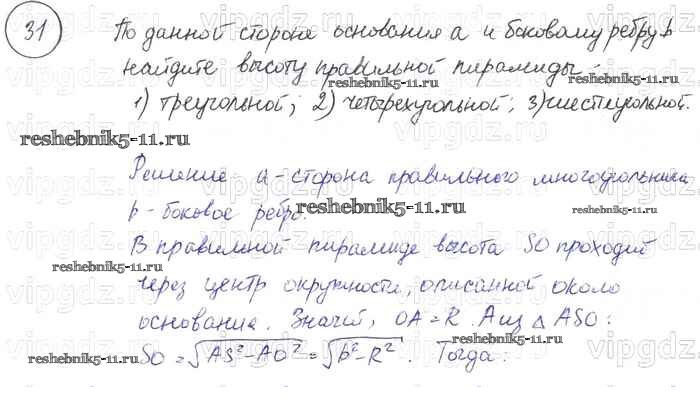 31 По данной стороне основания a и боковому ребру b
найдите высоту правильной пирамиды:
reshebnik5-11.ru
1) треугольной; 2) четырехугольной; 3) шестиугольной.
reshebnik5-11.ru
reshebnik5-11.ru
Решение a - сторона правильного многоугольника
b - боковое ребро.
reshebnik5-11.ru
reshebnik5-11.ru
В правильной пирамиде высота SO проходит
reshebnik5-11.ru
через центр окружности, описанной около
reshebnik5-11.ru
основания. Значит, OA = R. А из △ ASO:
reshebnik5-11.ru
SO = √AS² - AO² = √b² - R². Тогда:
reshebnik5-11.ru
reshebnik5-11.ru